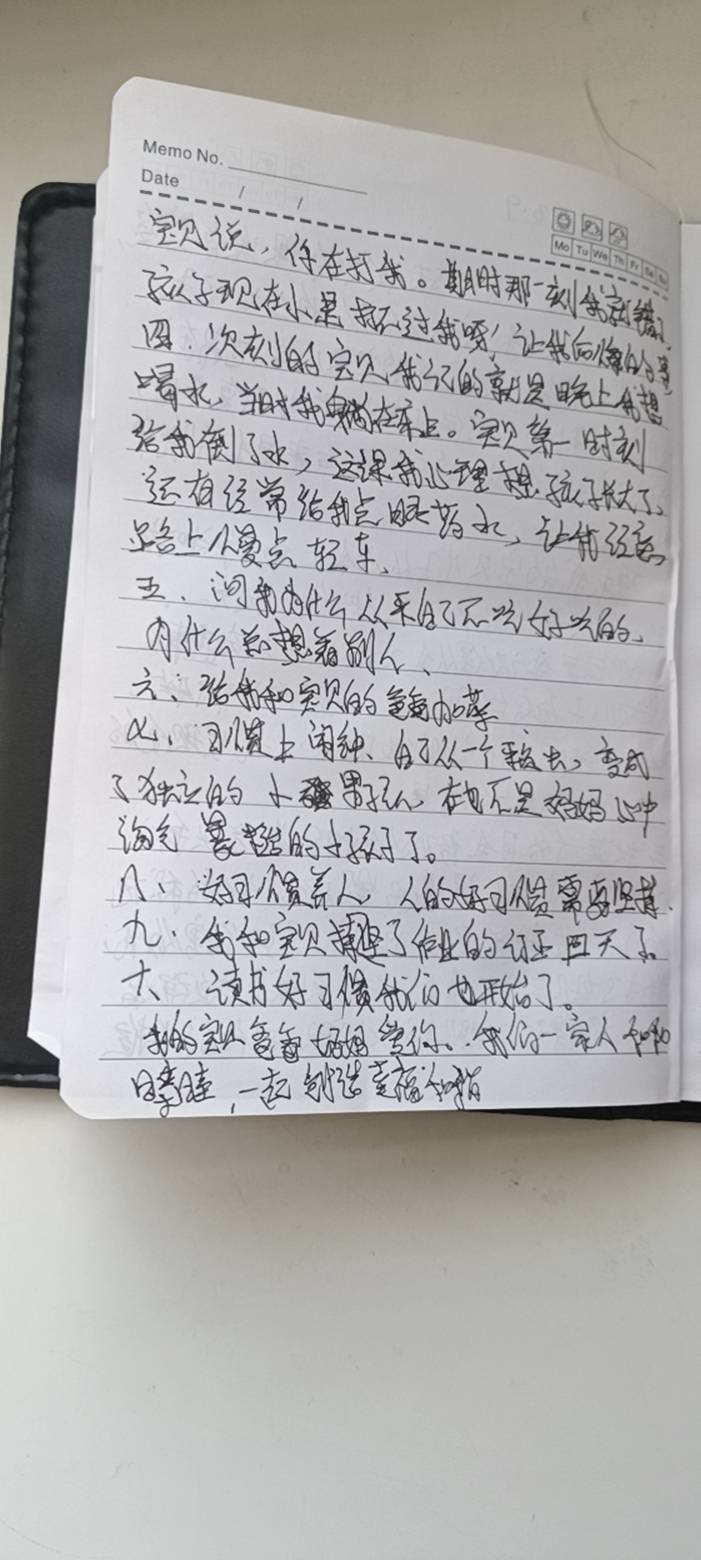 Memo No.
Date / /
Mo Tu We Th Fr Sa Su
宝贝说，你在打我。其时那一刻我就错了，
孩子现在小是打不过我呀！让我后悔的事，
四．次刻的宝贝，我记的就是晚上我想
喝水，当时我躺在床上。宝贝第一时刻
给我倒了水，这课我心理想孩子长大了、
还有经常给我点眼药水，让我
路上慢点轻车、
五．问我为什么从来自己不吃好吃的、
为什么总想着别人、
六、给我和宝贝的爸爸加菜
七、习惯上闹钟、自己从一个，变成
了独立的小男孩，在也不是妈妈心中
淘气的小孩子了。
八、好习惯养人，人的好习惯需要坚持．
九、我和宝贝坚了作业的订正四天了。
十、读书好习惯我们也开始了。
我的宝贝爸爸妈妈爱你。我们一家人和和
睦睦，一起创造幸福和谐